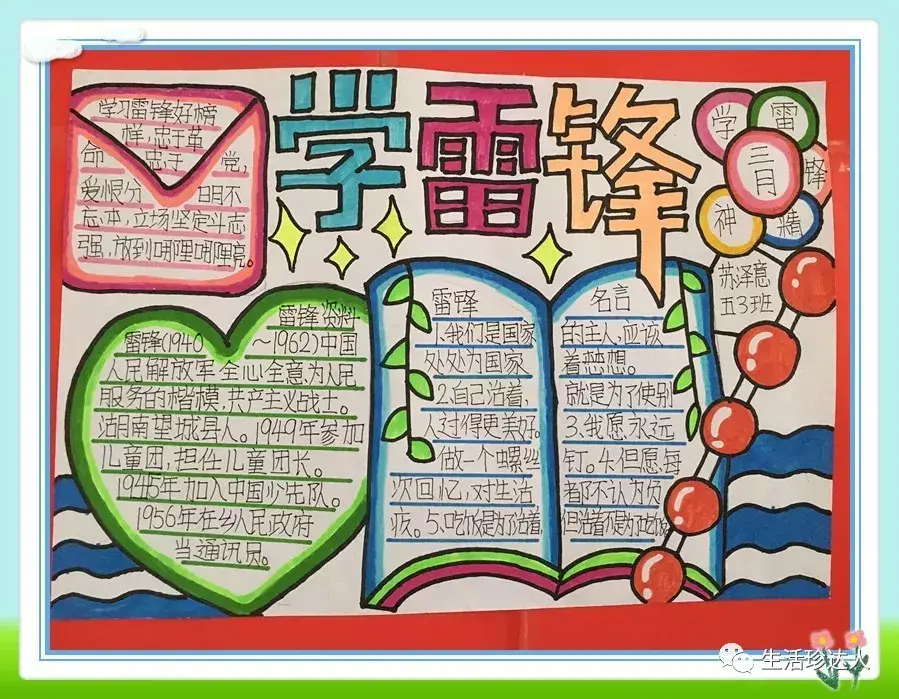 学雷锋
学习雷锋好榜
样,忠于革
命 忠于 党,
爱恨分 明不
忘本,立场坚定斗志
强,放到哪里哪里亮。
学 雷
锋
精
神
三月
苏泽意
五3班
雷锋资料
雷锋(1940 ~1962)中国
人民解放军全心全意为人民
服务的楷模,共产主义战士。
湖南望城县人。1949年参加
儿童团,担任儿童团长。
1945年加入中国少先队。
1956年在乡人民政府
当通讯员。
雷锋 名言
1.我们是国家 的主人,应该
处处为国家 着想。
2.自己活着, 就是为了使别
人过得更美好。 3.我愿永远
做一个螺丝 钉。4.但愿每
次回忆,对生活 都不认为负
疚。5.吃饭是为了活着, 但活着不是为了吃饭
生活珍达人